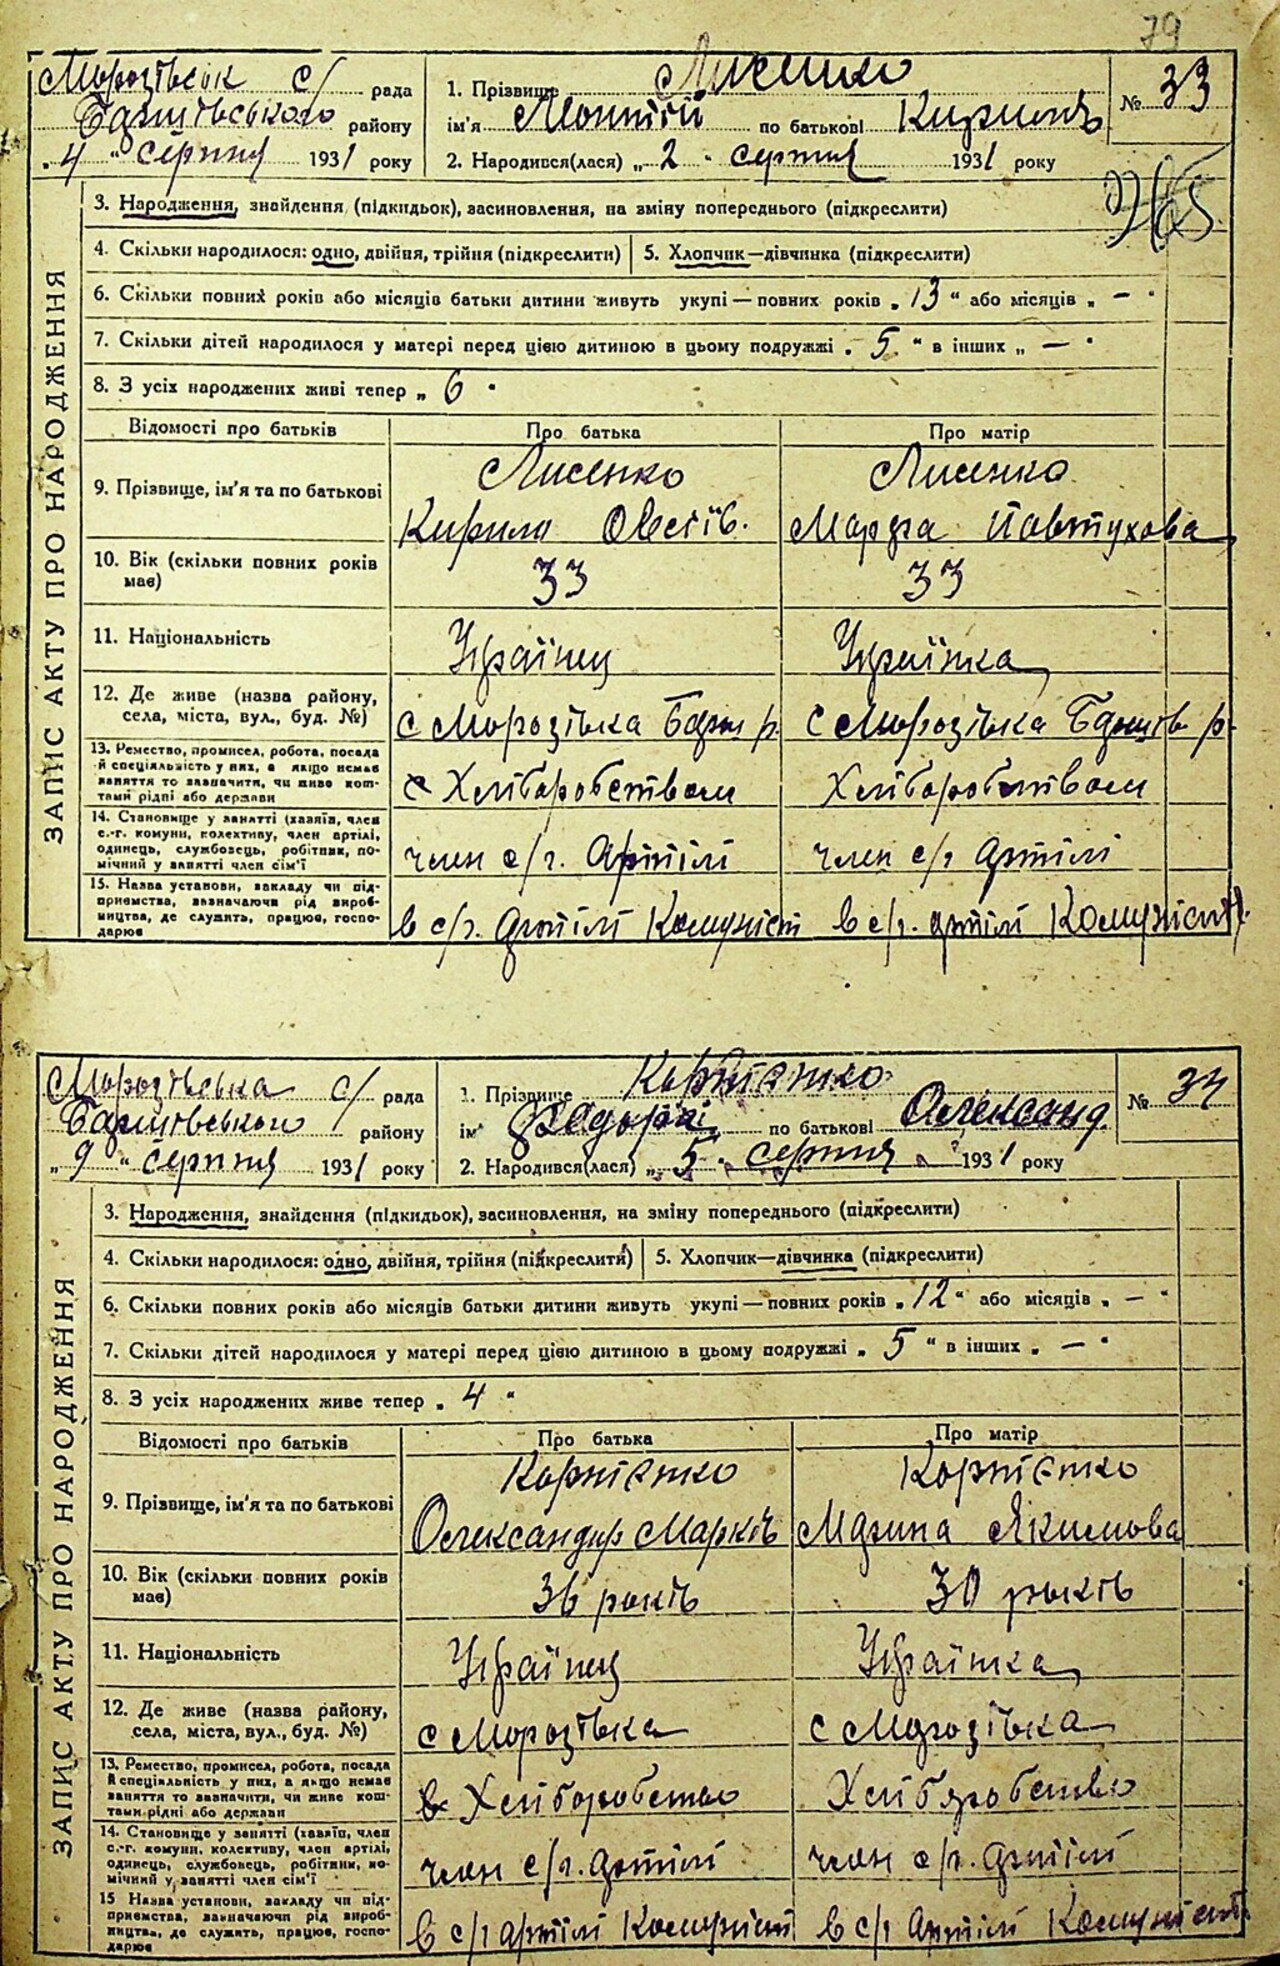 79
Морозівськ с/ рада
Баришівського району
„4“ серпня 1931 року
1. Прізвище Лисенко
ім'я по батькові Кирилів
№ 33
2. Народився(лася) „2“ серпня 1931 року
3. Народження, знайдення (підкидьок), засиновлення, на зміну попереднього (підкреслити)
4. Скільки народилося: одно, двійня, трійня (підкреслити) 5. Хлопчик—дівчинка (підкреслити)
6. Скільки повних років або місяців батьки дитини живуть укупі — повних років „13“ або місяців „—“
7. Скільки дітей народилося у матері перед цією дитиною в цьому подружжі „5“ в інших „—“
8. З усіх народжених живі тепер „6“
ЗАПИС АКТУ ПРО НАРОДЖЕННЯ
Відомості про батьків Про батька Про матір
9. Прізвище, ім'я та по батькові
Лисенко Лисенко
Кирило Овсіїв. Марфа Павтухова
10. Вік (скільки повних років має)
33 33
11. Національність Українец Українка
12. Де живе (назва району, села, міста, вул., буд. №)
с Морозівка Барш р. с Морозівка Баришів р.
13. Ремество, промисел, робота, посада
й спеціальність у них, а якщо немає
заняття то зазначити, чи живе кош-
тами рідні або держави
Хліборобством Хліборобством
14. Становище у занятті (хазяїн, член
с.-г. комуни, колективу, член артілі,
одинець, службовець, робітник, по-
мічний у занятті член сім'ї
член с/г. Артілі член с/г артілі
15. Назва установи, закладу чи під-
приємства, зазначаючи рід вироб-
ництва, де служить, працює, госпо-
дарює
в с/г. артілі Комуніст в с/г. артілі Комуніст
Морозівська с/ рада
Баришівського району
„9“ серпня 1931 року
1. Прізвище Корнієнко
ім' Федора по батькові Олександ.
№ 34
2. Народився(лася) „5“ серпня 1931 року
3. Народження, знайдення (підкидьок), засиновлення, на зміну попереднього (підкреслити)
4. Скільки народилося: одно, двійня, трійня (підкреслити) 5. Хлопчик—дівчинка (підкреслити)
6. Скільки повних років або місяців батьки дитини живуть укупі — повних років „12“ або місяців „—“
7. Скільки дітей народилося у матері перед цією дитиною в цьому подружжі „5“ в інших „—“
8. З усіх народжених живе тепер „4“
ЗАПИС АКТУ ПРО НАРОДЖЕННЯ
Відомості про батьків Про батька Про матір
9. Прізвище, ім'я та по батькові
Корнієнко Корнієнко
Олександир Марків Марина Якимова
10. Вік (скільки повних років має)
36 років 30 років
11. Національність Українец Українка
12. Де живе (назва району, села, міста, вул., буд. №)
с Морозівка с Морозівка
13. Ремество, промисел, робота, посада
й спеціальність у них, а якщо немає
заняття то зазначити, чи живе кош-
тами рідні або держави
Хліборобство Хліборобство
14. Становище у занятті (хазяїн, член
с.-г. комуни, колективу, член артілі,
одинець, службовець, робітник, по-
мічний у занятті член сім'ї
член с/г. артілі член с/г. артілі
15 Назва установи, закладу чи під-
приємства, зазначаючи рід вироб-
ництва, де служить, працює, госпо-
дарює
в с/г артілі Комуніст в с/г артілі Комуніст